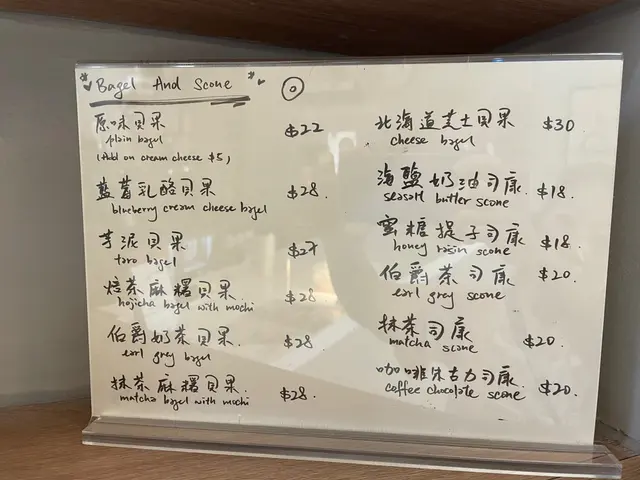 Bagel And Scone
原味貝果 $22
plain bagel
(Add on cream cheese $5)
藍莓乳酪貝果 $28.
blueberry cream cheese bagel
芋泥貝果 $27
taro bagel
焙茶麻糬貝果 $28
hojicha bagel with mochi
伯爵奶茶貝果 $28.
earl grey bagel
抹茶麻糬貝果 $28.
matcha bagel with mochi
北海道芝士貝果 $30
cheese bagel
海鹽奶油司康 $18.
seasalt butter scone
蜜糖提子司康 $18.
honey raisin scone
伯爵茶司康 $20.
earl grey scone
抹茶司康 $20.
matcha scone
咖啡朱古力司康 $20.
coffee chocolate scone